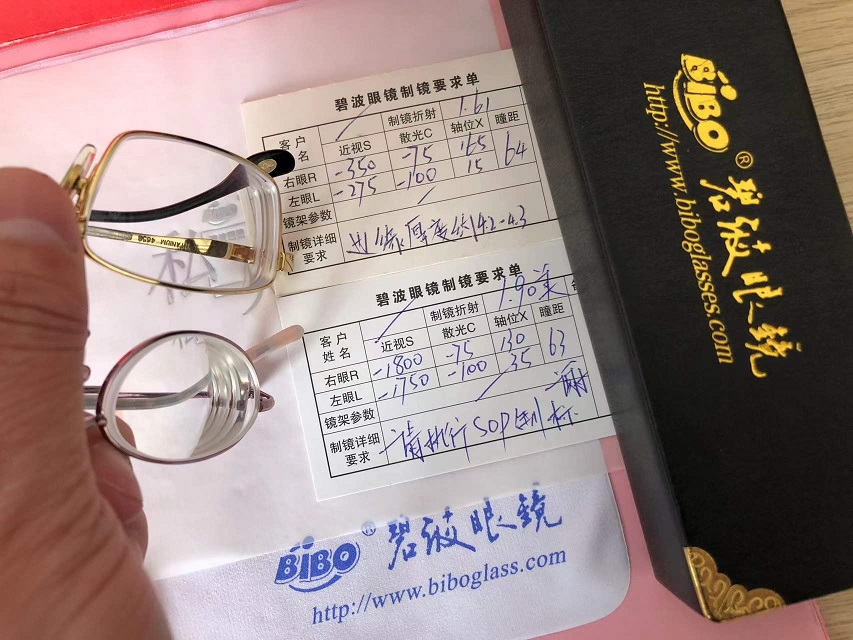 碧波眼镜制镜要求单
客户 制镜折射 1.61
姓名 近视S 散光C 轴位X 瞳距
右眼R -350 -75 165 64
左眼L -275 -100 15
镜架参数
制镜详细要求 边缘厚度约4.2-4.3
碧波眼镜制镜要求单
客户 制镜折射 1.90
姓名 近视S 散光C 轴位X 瞳距
右眼R -1800 -75 130 63
左眼L -1750 -100 35
镜架参数
制镜详细要求 请执行SOP
TITANIUM 4658
BiBO® 碧波眼镜
http://www.biboglass.com
BiBO® 碧波眼镜
http://www.biboglasses.com